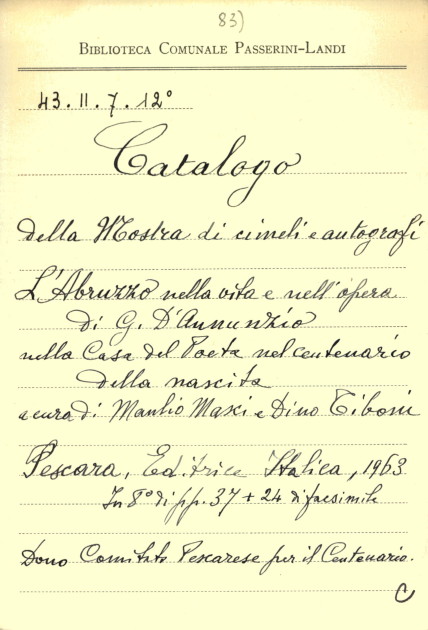 83)
BIBLIOTECA COMUNALE PASSERINI-LANDI
43.II.7.12°
Catalogo
della Mostra di cimeli e autografi
L'Abruzzo nella vita e nell'opera
di G. D'Annunzio
nella Casa del Poeta nel centenario
della nascita
a cura di Manlio Masci e Dino Tiboni
Pescara, Editrice Italica, 1963
In 8° di pp. 37 + 24 di facsimile
Dono Comitato Pescarese per il Centenario.
C